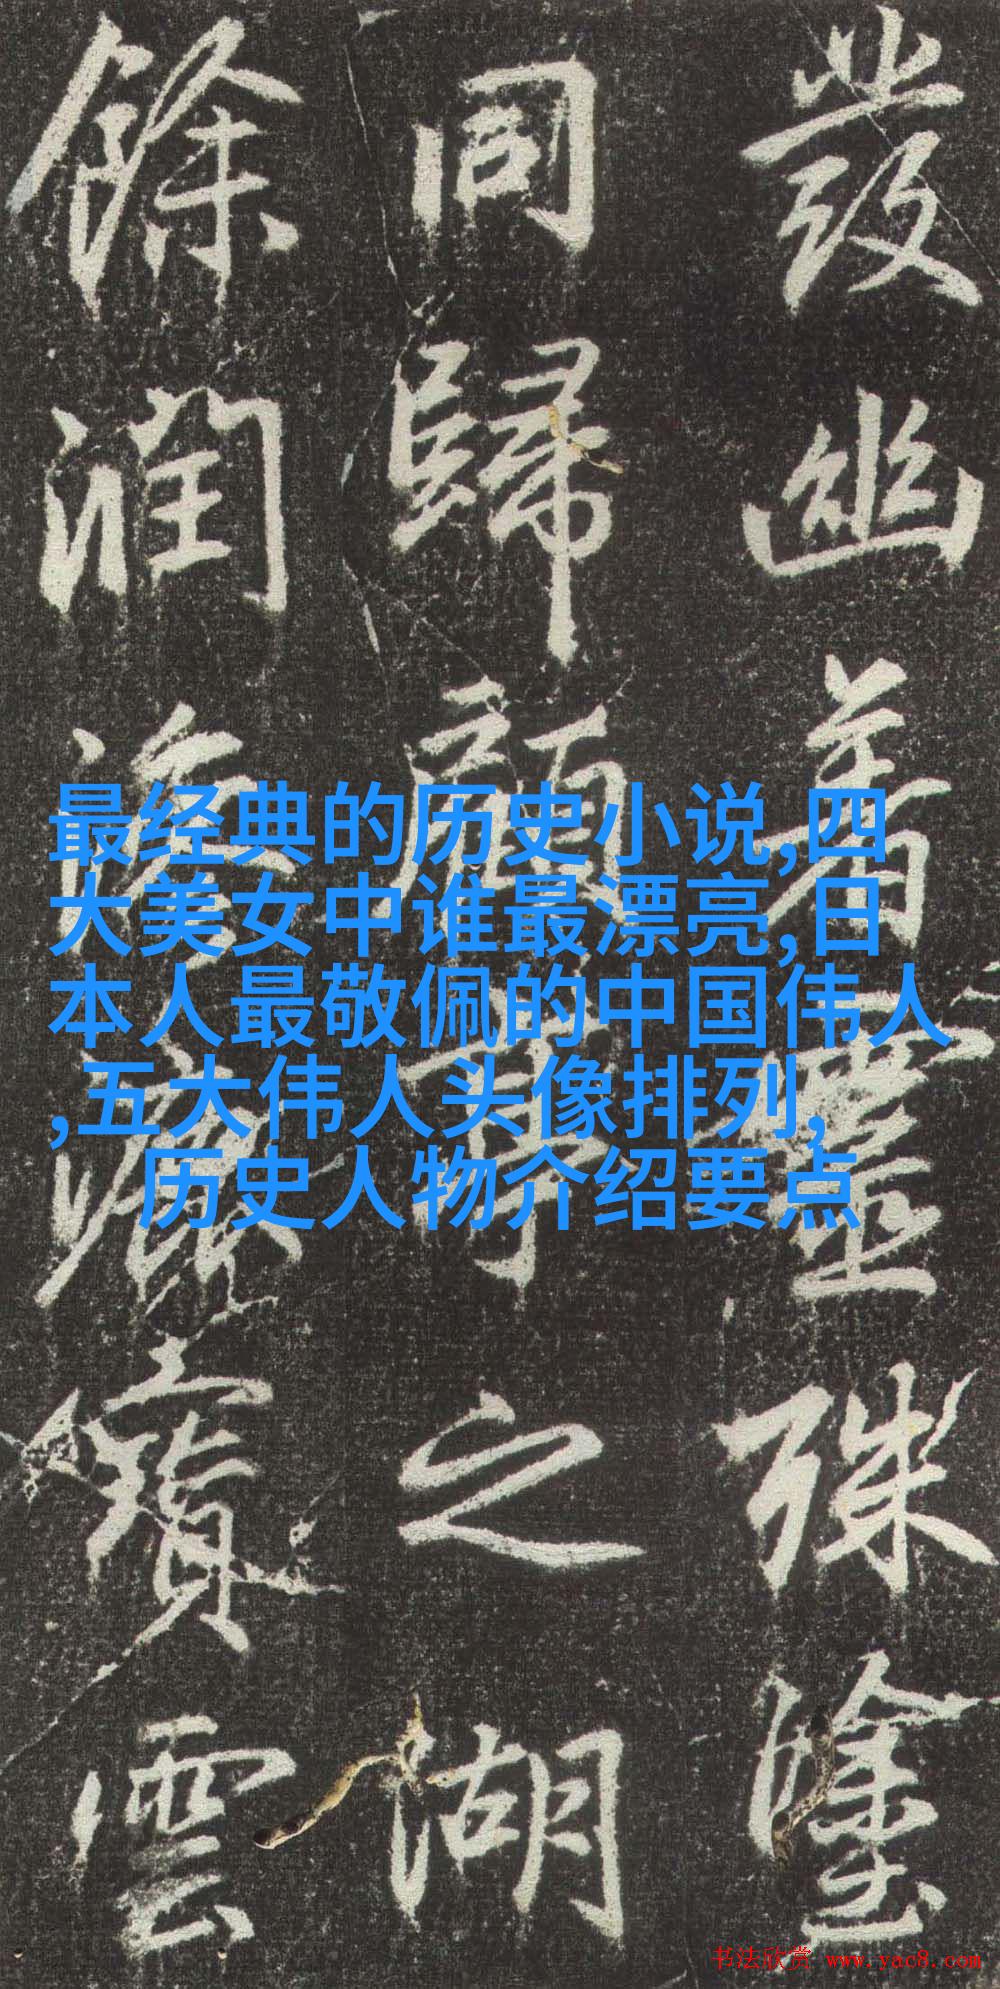 發幽著靈殊塗
同歸之湖
餘潤雲
最经典的历史小说,四
大美女中谁最漂亮,日
本人最敬佩的中国伟人
,五大伟人头像排列,
历史人物介绍要点
书法欣赏 www.yac8.com